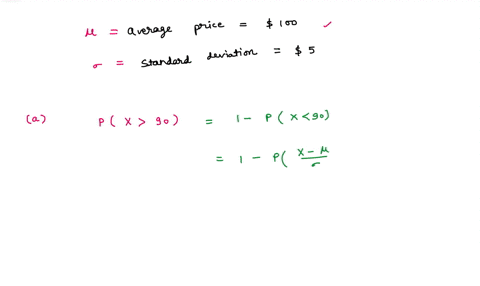 μ = average price = $100 ✓
σ = standard deviation = $5
(a) P( X > 90) = 1 - P( X < 90)
= 1 - P( (X - μ)/σ